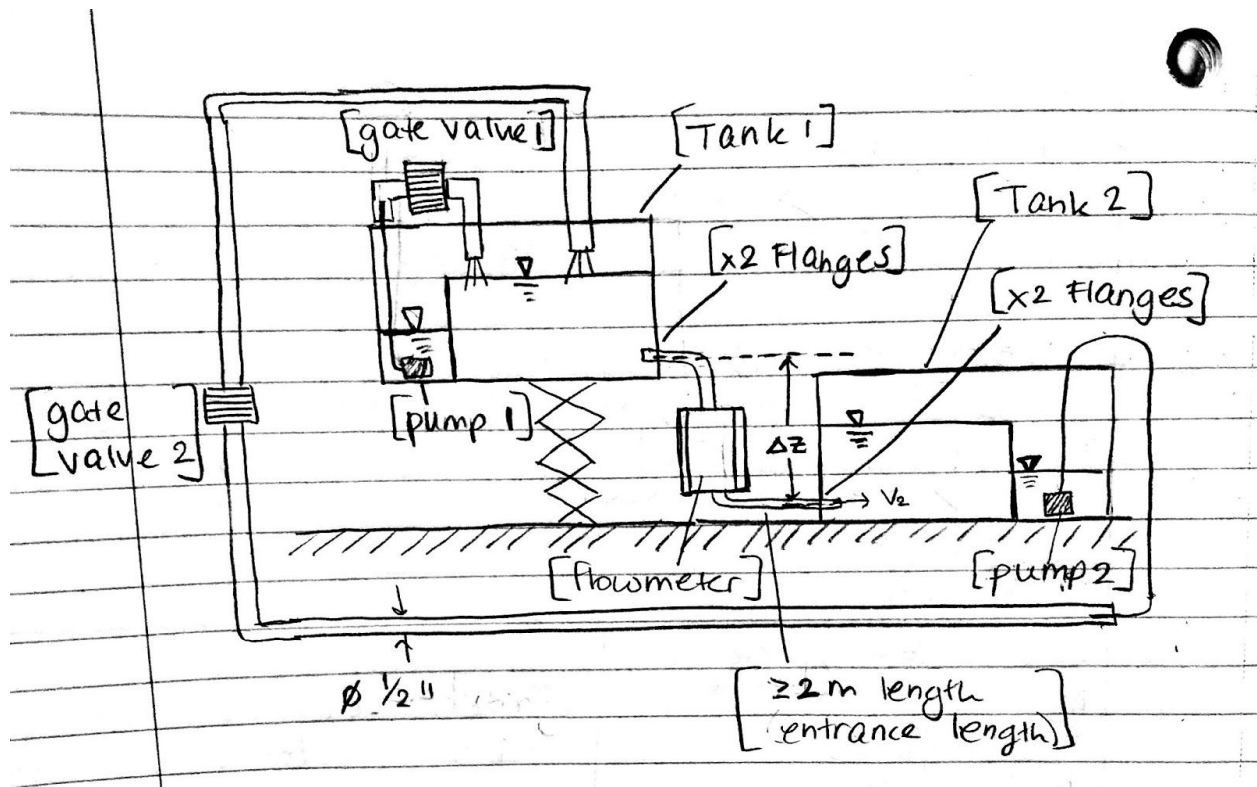 [gate valve 1]
[Tank 1]
[Tank 2]
[x2 Flanges]
[x2 Flanges]
[gate
valve 2]
[pump 1]
ΔZ
V₂
[flowmeter]
[pump 2]
ø 1/2"
[≥2m length
(entrance length)]